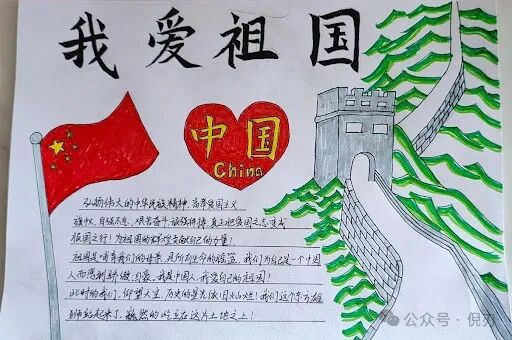 我爱祖国
中国
China
弘扬伟大的中华民族精神,高举爱国主义
旗帜,自强不息,艰苦奋斗,顽强拼搏,真正把爱国之志变成
报国之行!为祖国的辉煌贡献自己的力量!
祖国是哺育我们的母亲,是所有生命的摇篮,我们为自己是一个中国
人而感到骄傲,自豪,我是中国人,我爱自己的祖国!
此时的我们,仰望天空,历史的星光依旧灿烂!我们这个东方雄
狮站起来了,巍然的屹立在这片土地之上!
公众号·倪刃